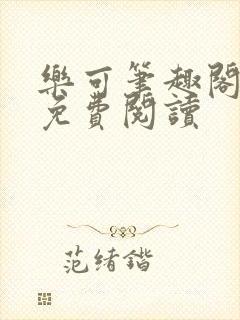 樂可筆趣閣
免費閱讀
范绪锴